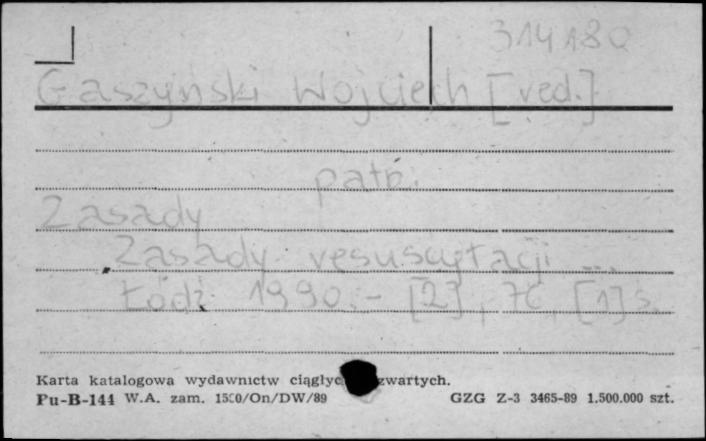 314180
Gaszyński Wojciech [red.]
patrz.
Zasady
Zasady resuscytacji ...
Łódź 1990.- [2], 76, [1] s.
Karta katalogowa wydawnictw zwartych.
Pu-B-144 W.A. zam. /On/DW/89 GZG Z-3 3465-89 1.500.000 szt.